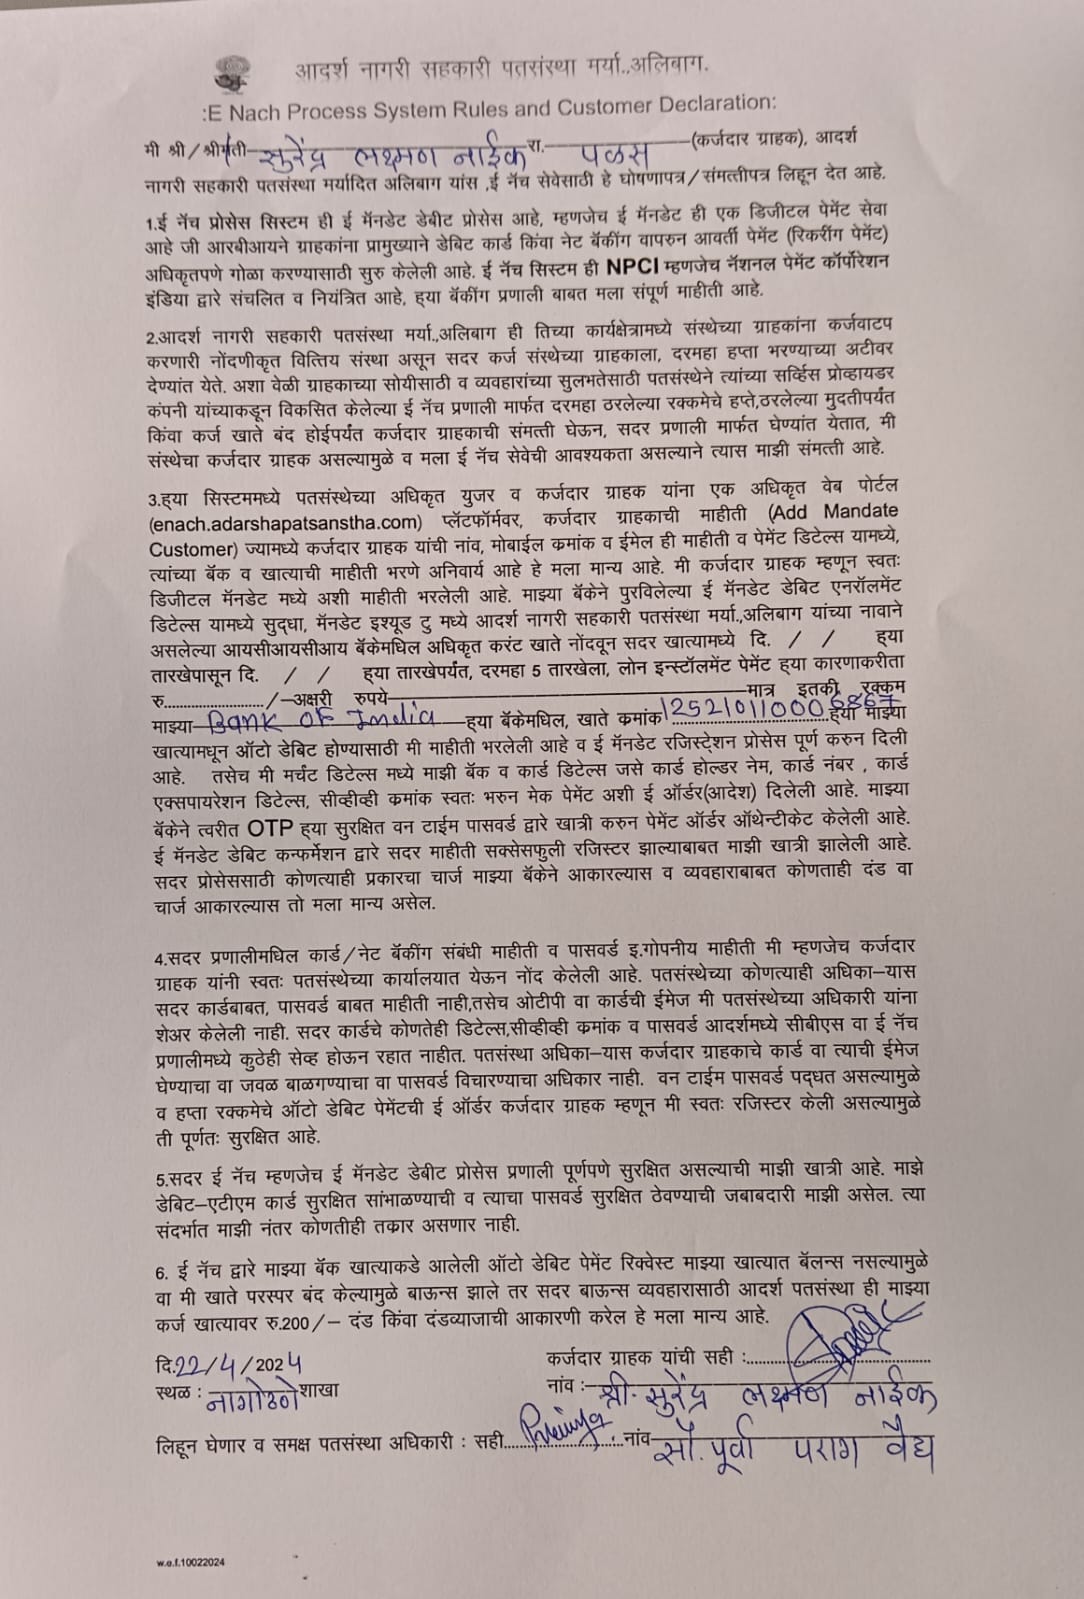 आदर्श नागरी सहकारी पतसंस्था मर्या.,अलिबाग.
:E Nach Process System Rules and Customer Declaration:
मी श्री/श्रीमती—सुरेंद्र लक्ष्मण नाईक रा.—पळस—(कर्जदार ग्राहक), आदर्श
नागरी सहकारी पतसंस्था मर्यादित अलिबाग यांस ,ई नॅच सेवेसाठी हे घोषणापत्र/संमत्तीपत्र लिहून देत आहे.
1.ई नॅच प्रोसेस सिस्टम ही ई मॅनडेट डेबीट प्रोसेस आहे, म्हणजेच ई मॅनडेट ही एक डिजीटल पेमेंट सेवा
आहे जी आरबीआयने ग्राहकांना प्रामुख्याने डेबिट कार्ड किंवा नेट बॅकींग वापरुन आवर्ती पेमेंट (रिकरींग पेमेंट)
अधिकृतपणे गोळा करण्यासाठी सुरु केलेली आहे. ई नॅच सिस्टम ही NPCI म्हणजेच नॅशनल पेमेंट कॉर्पोरेशन
इंडिया द्वारे संचलित व नियंत्रित आहे, ह्या बॅकींग प्रणाली बाबत मला संपूर्ण माहीती आहे.
2.आदर्श नागरी सहकारी पतसंस्था मर्या.,अलिबाग ही तिच्या कार्यक्षेत्रामध्ये संस्थेच्या ग्राहकांना कर्जवाटप
करणारी नोंदणीकृत वित्तिय संस्था असून सदर कर्ज संस्थेच्या ग्राहकाला, दरमहा हप्ता भरण्याच्या अटीवर
देण्यांत येते. अशा वेळी ग्राहकाच्या सोयीसाठी व व्यवहारांच्या सुलभतेसाठी पतसंस्थेने त्यांच्या सर्व्हिस प्रोव्हायडर
कंपनी यांच्याकडून विकसित केलेल्या ई नॅच प्रणाली मार्फत दरमहा ठरलेल्या रक्कमेचे हप्ते,ठरलेल्या मुदतीपर्यंत
किंवा कर्ज खाते बंद होईपर्यंत कर्जदार ग्राहकाची संमत्ती घेऊन, सदर प्रणाली मार्फत घेण्यांत येतात, मी
संस्थेचा कर्जदार ग्राहक असल्यामुळे व मला ई नॅच सेवेची आवश्यकता असल्याने त्यास माझी संमत्ती आहे.
3.ह्या सिस्टममध्ये पतसंस्थेच्या अधिकृत युजर व कर्जदार ग्राहक यांना एक अधिकृत वेब पोर्टल
(enach.adarshapatsanstha.com) प्लॅटफॉर्मवर, कर्जदार ग्राहकाची माहीती (Add Mandate
Customer) ज्यामध्ये कर्जदार ग्राहक यांची नांव, मोबाईल क्रमांक व ईमेल ही माहीती व पेमेंट डिटेल्स यामध्ये,
त्यांच्या बॅक व खात्याची माहीती भरणे अनिवार्य आहे हे मला मान्य आहे. मी कर्जदार ग्राहक म्हणून स्वतः
डिजीटल मॅनडेट मध्ये अशी माहीती भरलेली आहे. माझ्या बॅकेने पुरविलेल्या ई मॅनडेट डेबिट एनरॉलमेंट
डिटेल्स यामध्ये सुद्धा, मॅनडेट इश्यूड टु मध्ये आदर्श नागरी सहकारी पतसंस्था मर्या.,अलिबाग यांच्या नावाने
असलेल्या आयसीआयसीआय बॅकेमधिल अधिकृत करंट खाते नोंदवून सदर खात्यामध्ये दि. / / ह्या
तारखेपासून दि. / / ह्या तारखेपर्यंत, दरमहा 5 तारखेला, लोन इन्स्टॉलमेंट पेमेंट ह्या कारणाकरीता
रु........................./—अक्षरी रुपये—मात्र इतकी रक्कम
माझ्या—Bank of India—ह्या बॅकेमधिल, खाते क्रमांक 125210110006867 ह्या माझ्या
खात्यामधून ऑटो डेबिट होण्यासाठी मी माहीती भरलेली आहे व ई मॅनडेट रजिस्ट्रेशन प्रोसेस पूर्ण करुन दिली
आहे. तसेच मी मर्चंट डिटेल्स मध्ये माझी बॅक व कार्ड डिटेल्स जसे कार्ड होल्डर नेम, कार्ड नंबर , कार्ड
एक्सपायरेशन डिटेल्स, सीव्हीव्ही क्रमांक स्वतः भरुन मेक पेमेंट अशी ई ऑर्डर(आदेश) दिलेली आहे. माझ्या
बॅकेने त्वरीत OTP ह्या सुरक्षित वन टाईम पासवर्ड द्वारे खात्री करुन पेमेंट ऑर्डर ऑथेन्टीकेट केलेली आहे.
ई मॅनडेट डेबिट कन्फर्मेशन द्वारे सदर माहीती सक्सेसफुली रजिस्टर झाल्याबाबत माझी खात्री झालेली आहे.
सदर प्रोसेससाठी कोणत्याही प्रकारचा चार्ज माझ्या बॅकेने आकारल्यास व व्यवहाराबाबत कोणताही दंड वा
चार्ज आकारल्यास तो मला मान्य असेल.
4.सदर प्रणालीमधिल कार्ड/नेट बॅकींग संबंधी माहीती व पासवर्ड इ.गोपनीय माहीती मी म्हणजेच कर्जदार
ग्राहक यांनी स्वतः पतसंस्थेच्या कार्यालयात येऊन नोंद केलेली आहे. पतसंस्थेच्या कोणत्याही अधिका—यास
सदर कार्डबाबत, पासवर्ड बाबत माहीती नाही,तसेच ओटीपी वा कार्डची ईमेज मी पतसंस्थेच्या अधिकारी यांना
शेअर केलेली नाही. सदर कार्डचे कोणतेही डिटेल्स,सीव्हीव्ही क्रमांक व पासवर्ड आदर्शमध्ये सीबीएस वा ई नॅच
प्रणालीमध्ये कुठेही सेव्ह होऊन रहात नाहीत. पतसंस्था अधिका—यास कर्जदार ग्राहकाचे कार्ड वा त्याची ईमेज
घेण्याचा वा जवळ बाळगण्याचा वा पासवर्ड विचारण्याचा अधिकार नाही. वन टाईम पासवर्ड पद्धत असल्यामुळे
व हप्ता रक्कमेचे ऑटो डेबिट पेमेंटची ई ऑर्डर कर्जदार ग्राहक म्हणून मी स्वतः रजिस्टर केली असल्यामुळे
ती पूर्णतः सुरक्षित आहे.
5.सदर ई नॅच म्हणजेच ई मॅनडेट डेबीट प्रोसेस प्रणाली पूर्णपणे सुरक्षित असल्याची माझी खात्री आहे. माझे
डेबिट—एटीएम कार्ड सुरक्षित सांभाळण्याची व त्याचा पासवर्ड सुरक्षित ठेवण्याची जबाबदारी माझी असेल. त्या
संदर्भात माझी नंतर कोणतीही तक्रार असणार नाही.
6. ई नॅच द्वारे माझ्या बॅक खात्याकडे आलेली ऑटो डेबिट पेमेंट रिक्वेस्ट माझ्या खात्यात बॅलन्स नसल्यामुळे
वा मी खाते परस्पर बंद केल्यामुळे बाऊन्स झाले तर सदर बाऊन्स व्यवहारासाठी आदर्श पतसंस्था ही माझ्या
कर्ज खात्यावर रु.200/— दंड किंवा दंडव्याजाची आकारणी करेल हे मला मान्य आहे.
दि.22/4/2024 कर्जदार ग्राहक यांची सही :
स्थळ : नागोठणे शाखा नांव :— श्री. सुरेंद्र लक्ष्मण नाईक
लिहून घेणार व समक्ष पतसंस्था अधिकारी : सही..........नांव— सौ. पूर्वा पराग वैद्य
w.e.f.10022024